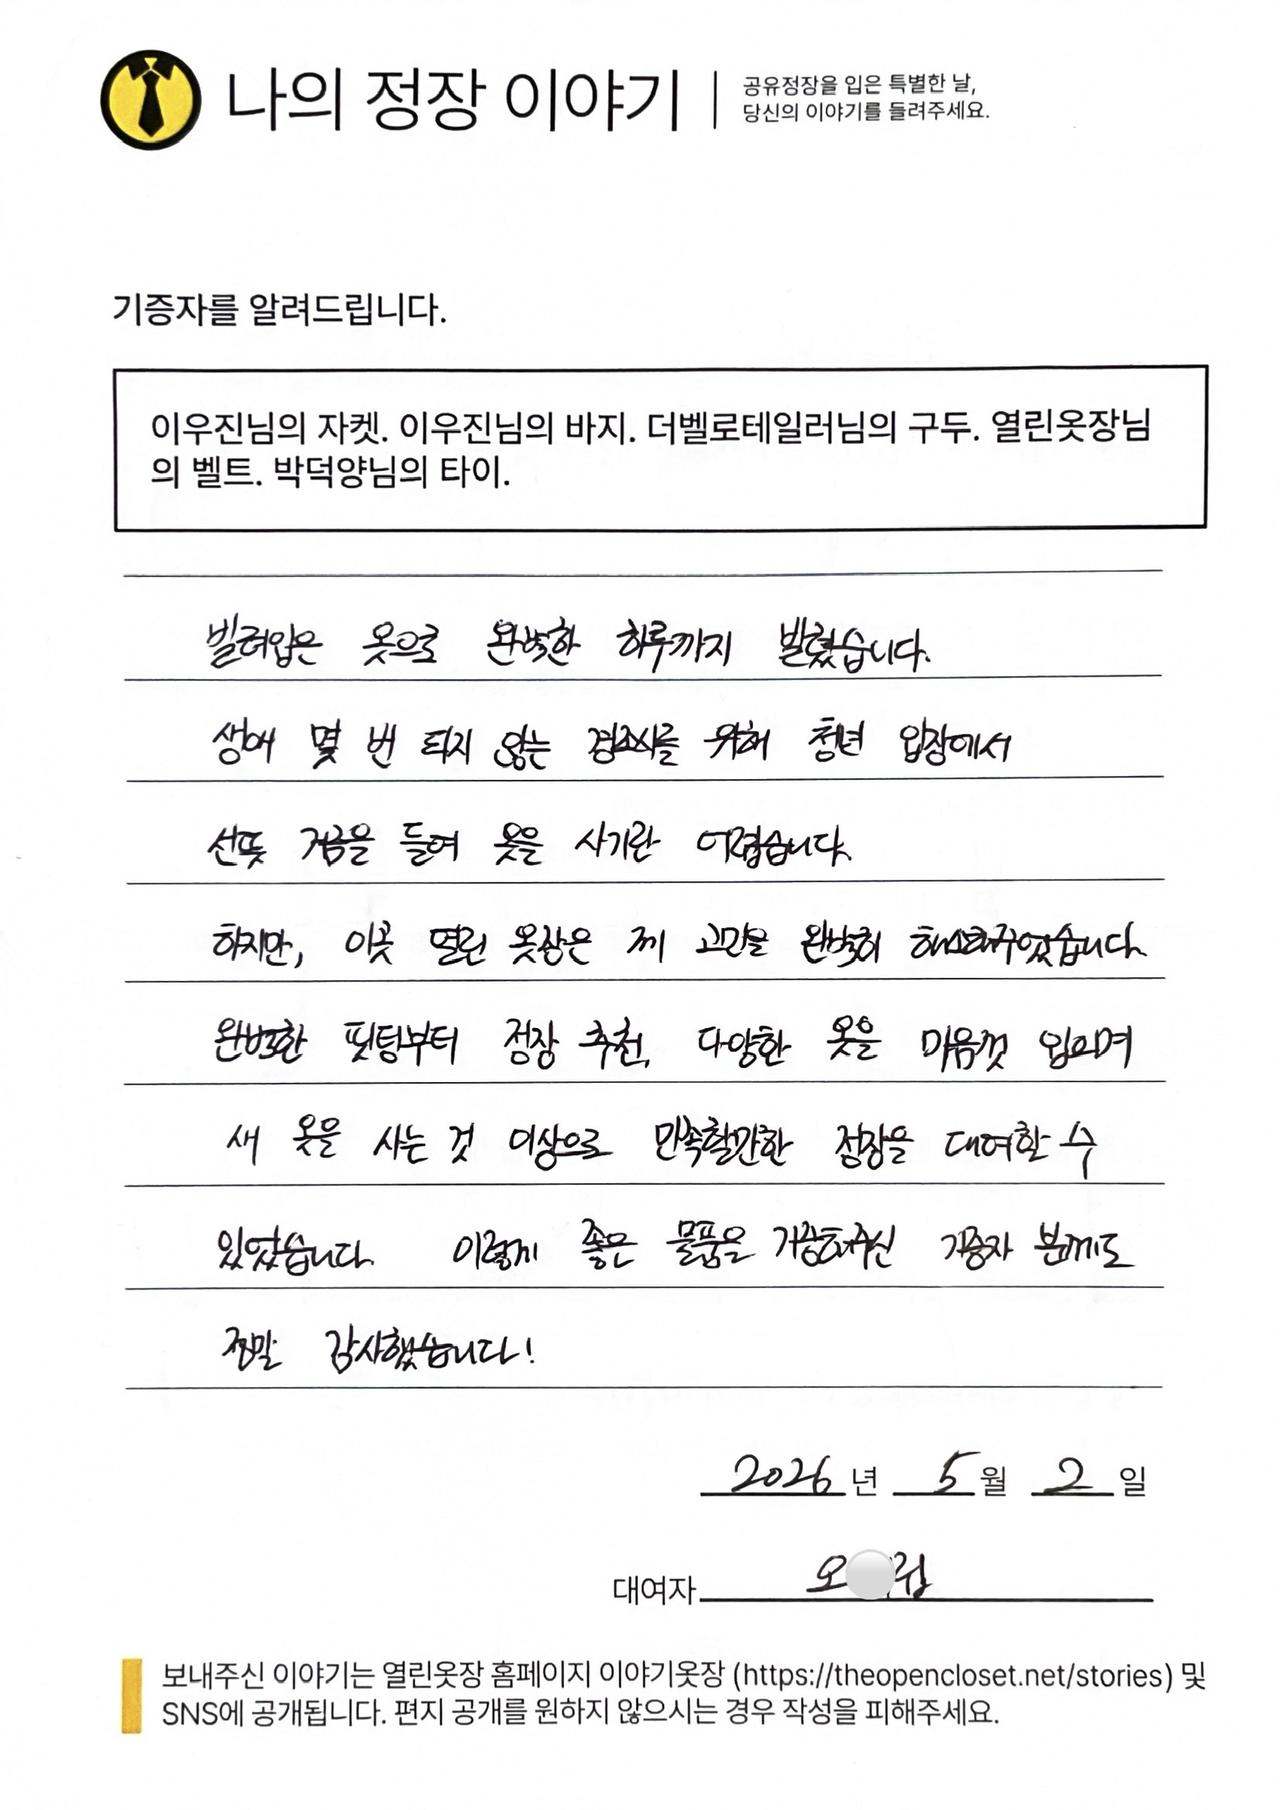 나의 정장 이야기
공유정장을 입은 특별한 날,
당신의 이야기를 들려주세요.
기증자를 알려드립니다.
이우진님의 자켓. 이우진님의 바지. 더벨로테일러님의 구두. 열린옷장님
의 벨트. 박덕양님의 타이.
빌려입은 옷으로 완벽한 하루까지 빌렸습니다.
생애 몇 번 되지 않는 경조사를 위해 청년 입장에서
선뜻 거금을 들여 옷을 사기란 어렵습니다.
하지만, 이곳 열린 옷장은 제 고민을 완벽히 해소해주었습니다.
완벽한 핏팅부터 정장 추천, 다양한 옷을 마음껏 입으며
새 옷을 사는 것 이상으로 만족할만한 정장을 대여할 수
있었습니다. 이렇게 좋은 물품을 기증해주신 기증자 분께도
정말 감사했습니다!
2026 년 5 월 2 일
대여자 오
보내주신 이야기는 열린옷장 홈페이지 이야기옷장 (https://theopencloset.net/stories) 및
SNS에 공개됩니다. 편지 공개를 원하지 않으시는 경우 작성을 피해주세요.